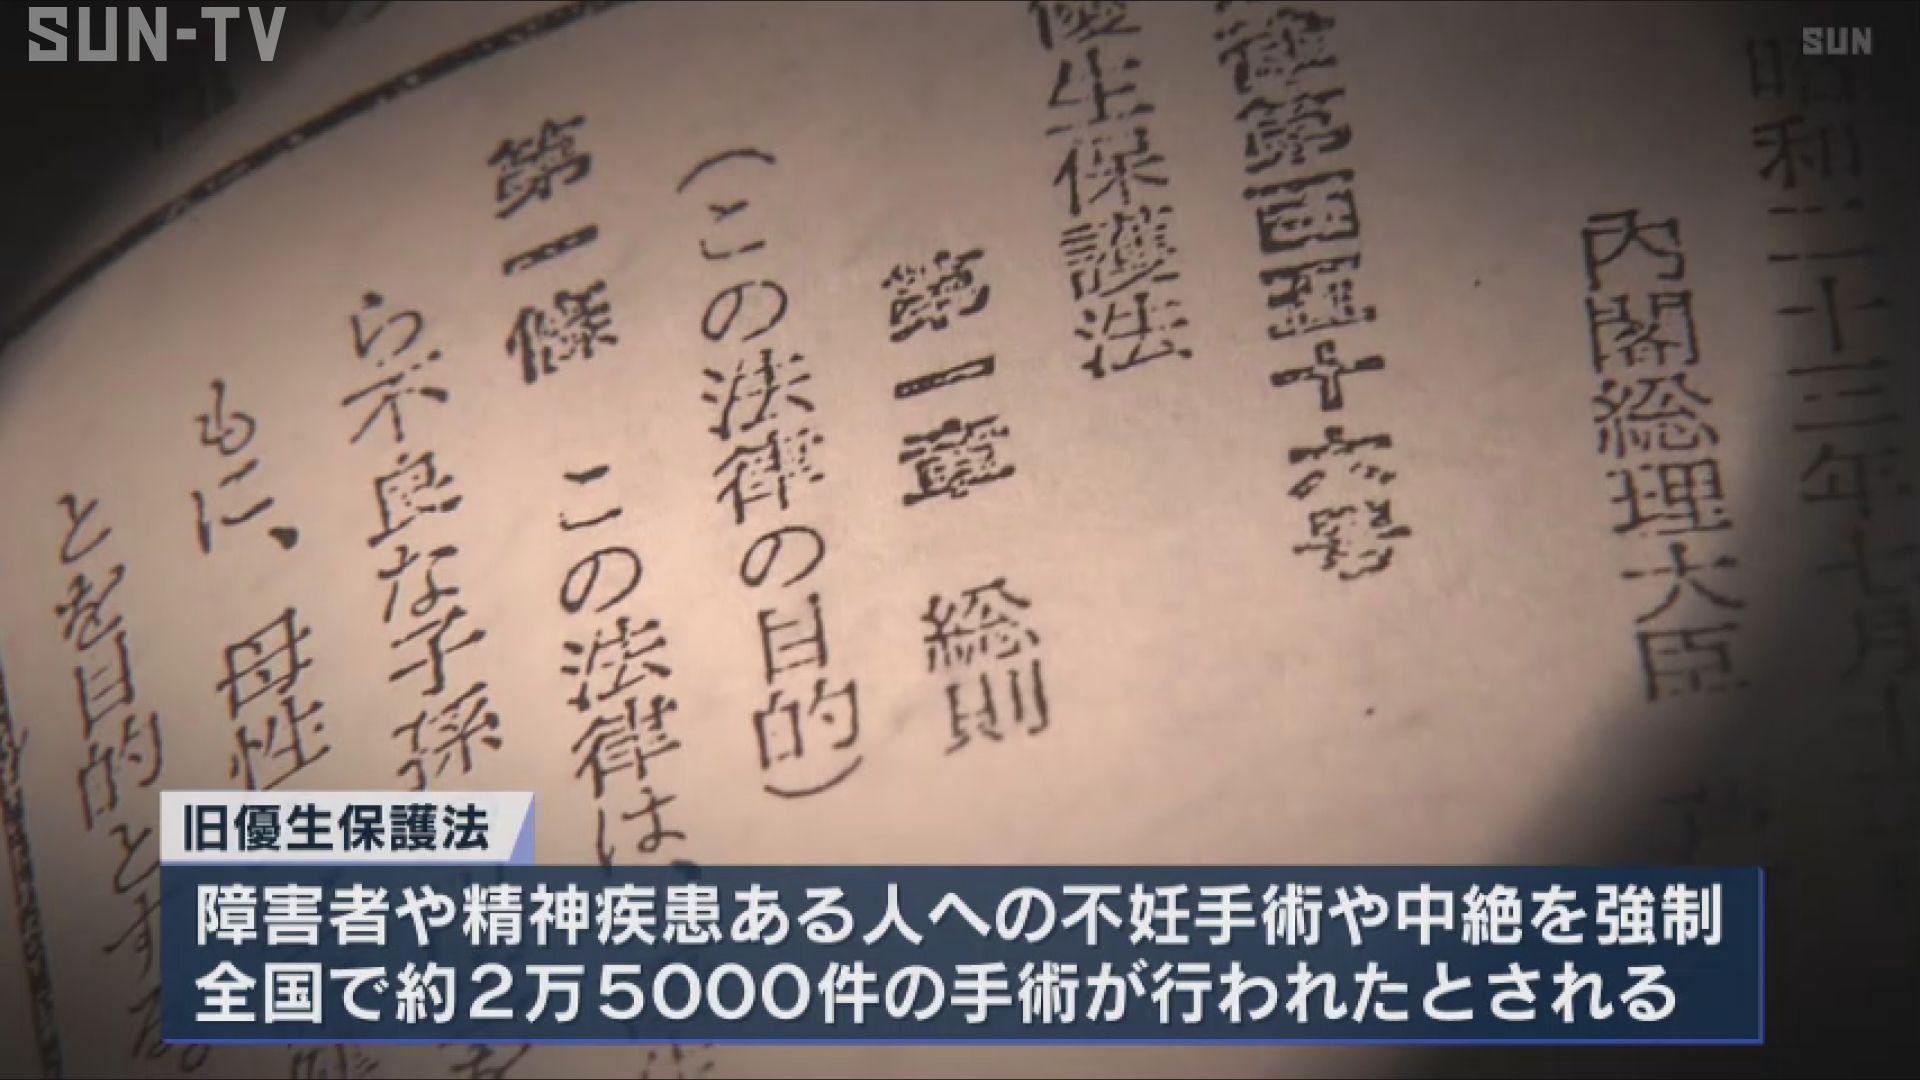 SUN-TV
SUN
昭和二十三年七月十
内閣総理大臣
律第百五十六号
優生保護法
第一章 総則
(この法律の目的)
第一條 この法律は、
ら不良な子孫
もに、母性
とを目的とする。
旧優生保護法
障害者や精神疾患ある人への不妊手術や中絶を強制
全国で約2万5000件の手術が行われたとされる